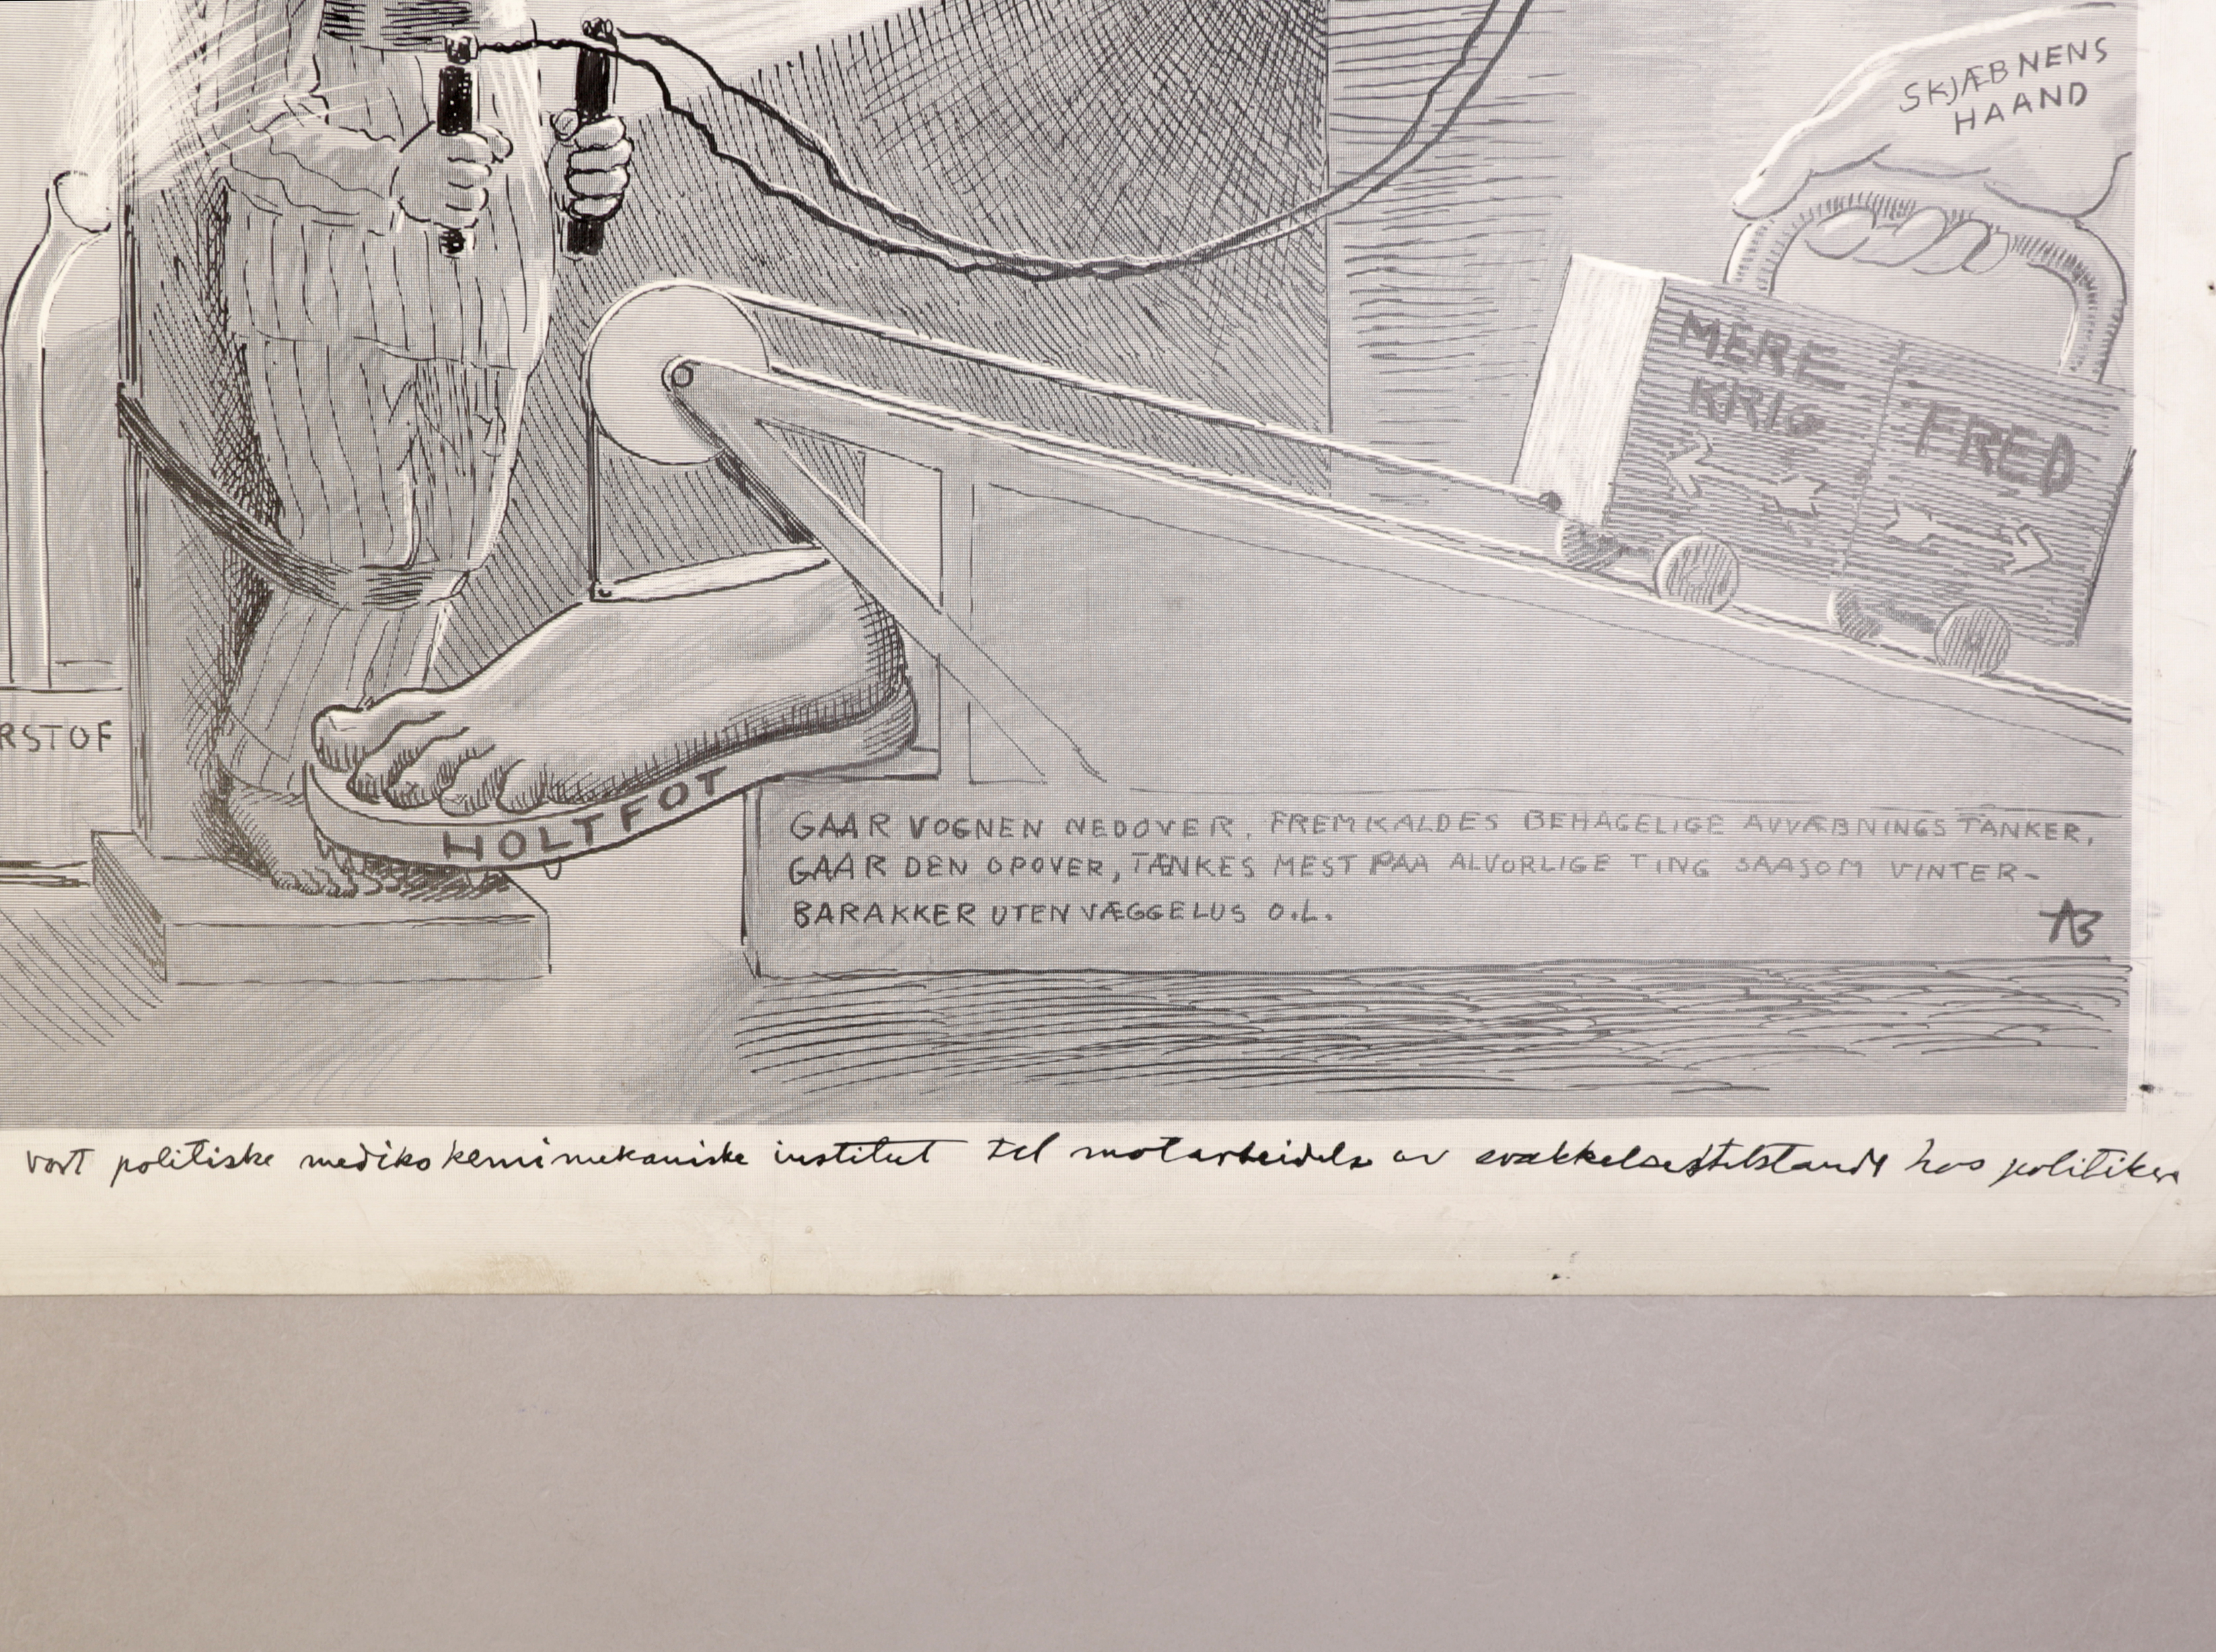 SKJÆBNENS
HAAND
MERE
KRIG
FRED
RSTOF
HOLTFOT
GAAR VOGNEN NEDOVER, FREMKALDES BEHAGELIGE AVVÆBNINGS TANKER,
GAAR DEN OPOVER, TÆNKES MEST PAA ALVORLIGE TING SAASOM VINTER-
BARAKKER UTEN VÆGGELUS O.L.
AB
vort politiske medikokemimekaniske institut til motarbeidelse av svakkelsestilstande hos politiker